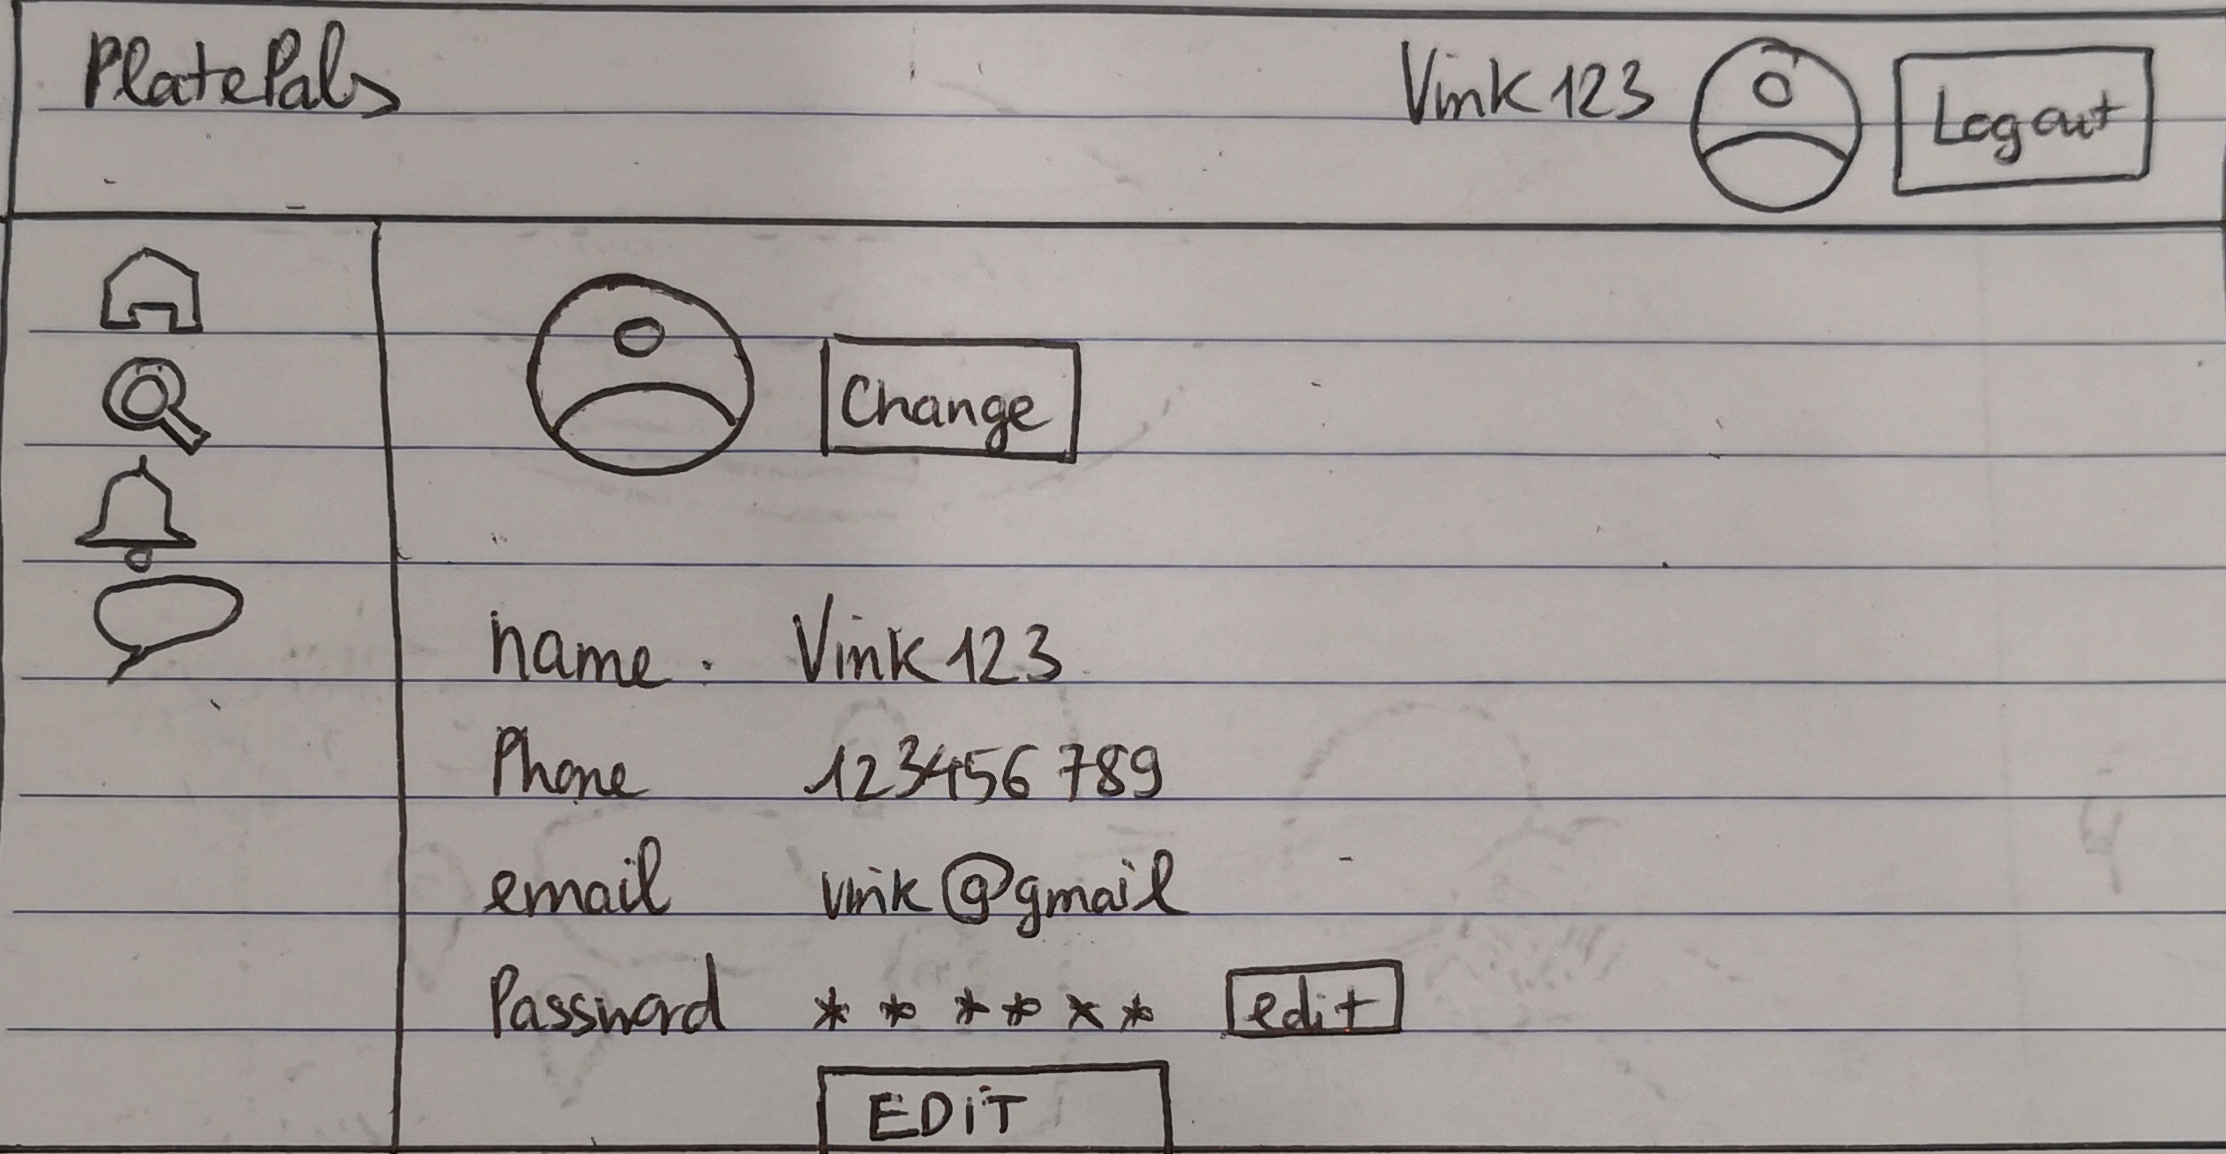 PlatePals
Vink123
Logout
Change
name. Vink123
Phone 123456789
email vink@gmail
Password ****** edit
EDiT